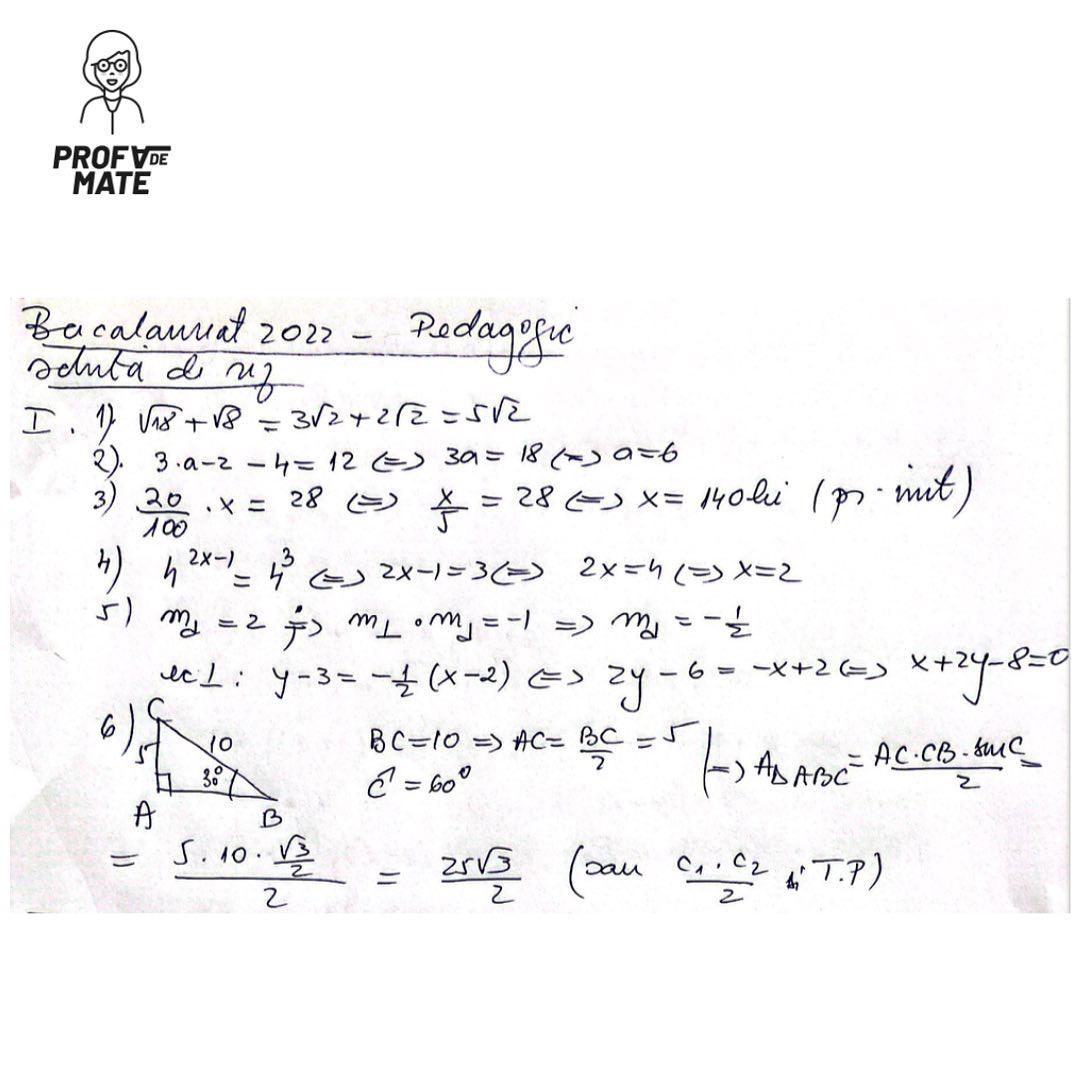 PROFA DE
MATE
Bacalaureat 2022 – Pedagogic
I. 1) √18 + √8 = 3√2 + 2√2 = 5√2
2). 3·a-2 - 4 = 12 <=> 3a = 18 <=> a=6
3) 20/100 · x = 28 <=> x/5 = 28 <=> x = 140 lei (pr. init)
4) 4^(2x-1) = 4^3 <=> 2x-1=3 <=> 2x=4 <=> x=2
5) m_d = 2 => m_⊥ · m_d = -1 => m_d = -1/2
ec ⊥: y-3 = -1/2 (x-2) <=> 2y-6 = -x+2 <=> x+2y-8=0
6) C 5 10 30° A B
BC=10 => AC = BC/2 = 5
Ĉ = 60°
=> A_ΔABC = AC·CB·sin C/2 =
= (5·10·√3/2)/2 = 25√3/2 (sau c₁·c₂/2 T.P)